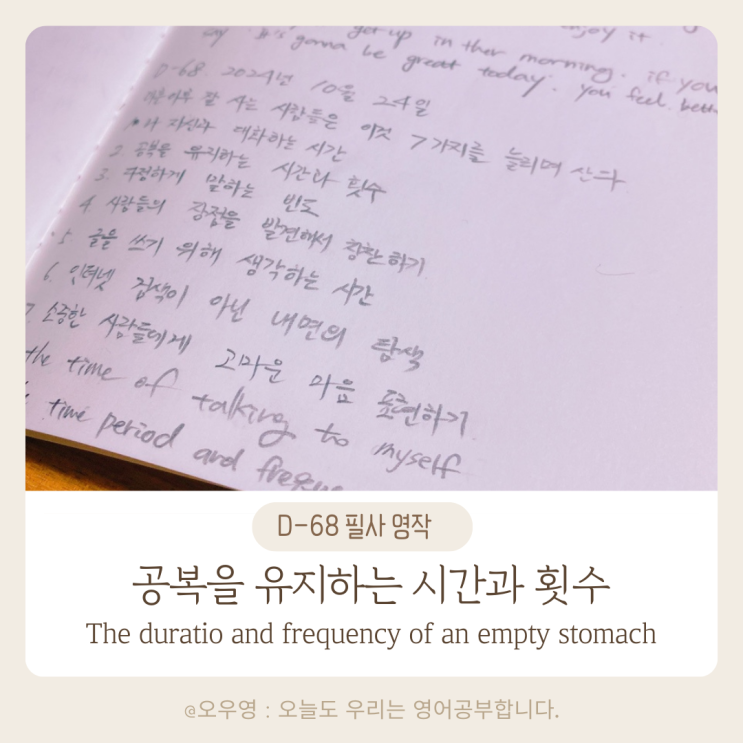 enjoy it.
get up in ther morning. if you
say It's gonna be great today. you feel bette
D-68. 2024년 10월 24일
잘 사는 사람들은 이것 7가지를 늘리며 산다
내 자신과 대화하는 시간
2. 공복을 유지하는 시간과 횟수
3. 다정하게 말하는 빈도
4. 사람들의 장점을 발견해서 칭찬하기
5. 글을 쓰기 위해 생각하는 시간
6. 인터넷 검색이 아닌 내면의 탐색
7. 소중한 사람들에게 고마운 마음 표현하기
the time of talking to myself
time period and freque
D-68 필사 영작
공복을 유지하는 시간과 횟수
The duratio and frequency of an empty stomach
@오우영 : 오늘도 우리는 영어공부합니다.